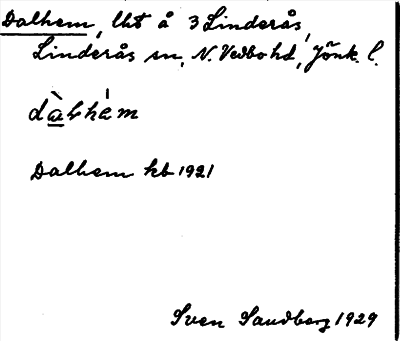 Dalhem, lht å 3 Linderås,
Linderås sn, N. Vedbo hd, Jönk. l.
dàlhém
Dalhem kb 1921
Sven Sandberg 1929